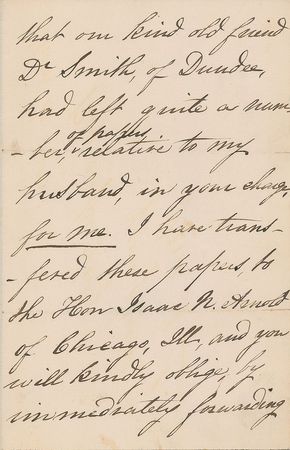 that our kind old friend
Dr Smith, of Dundee,
had left quite a num-
of papers,
-ber, relative to my
husband, in your charge,
for me. I have trans-
-fered these papers, to
the Hon Isaac N. Arnold
of Chicago, Ill, and you
will kindly oblige, by
immediately forwarding